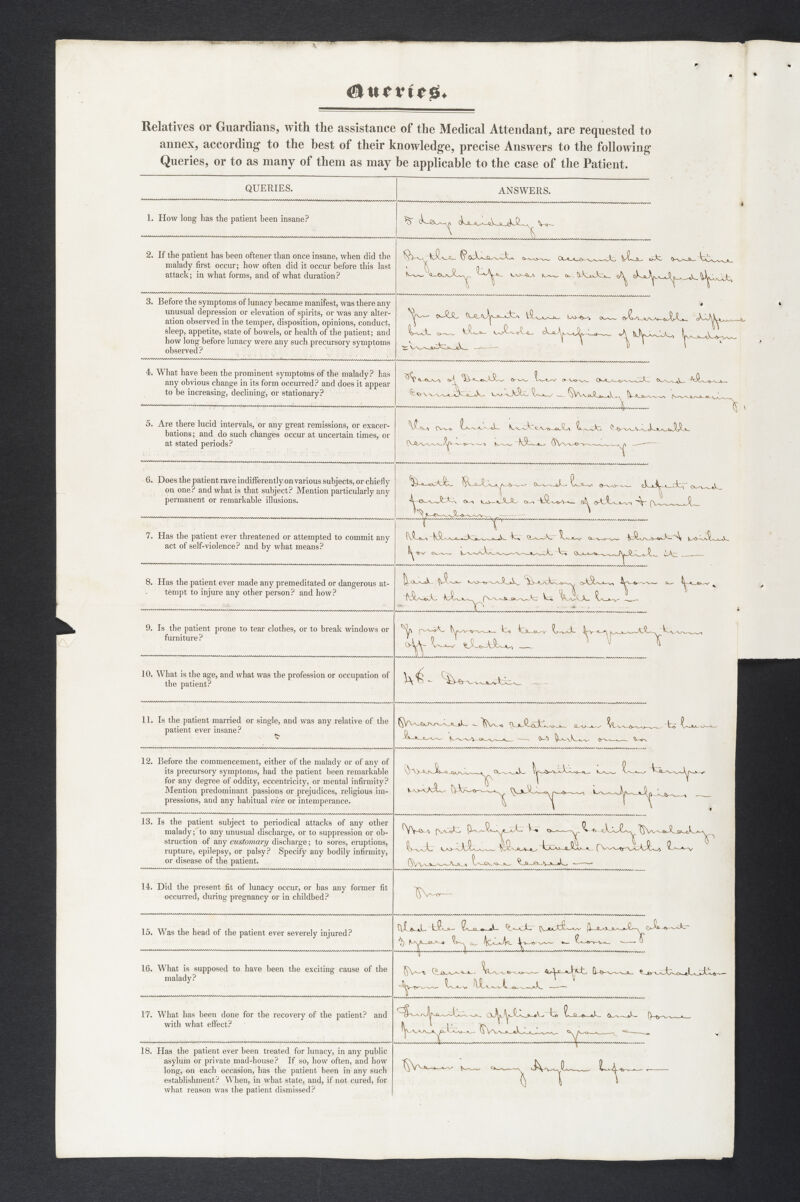 Queries.
Relatives or Guardians, with the assistance of the Medical Attendant, are requested to
annex, according to the best of their knowledge, precise Answers to the following
Queries, or to as many of them as may be applicable to the case of the Patient.
QUERIES.
ANSWERS.
1. How long has the patient been insane?
8 days decidedly so
2. If the patient has been oftener than once insane, when did the
malady first occur; how often did it occur before this last
attack; in what forms, and of what duration?
By the Patients own account she at one time
in early life was in a state of depressed Spirits
3. Before the symptoms of lunacy became manifest, was there any
unusual depression or elevation of spirits, or was any alter-
ation observed in the temper, disposition, opinions, conduct,
sleep, appetite, state of bowels, or health of the patient; and
how long before lunacy were any such precursory symptoms
observed?
In all respects there was an observable difference
but on the whole depression of Spirits predom
=inated
4. What have been the prominent symptoms of the malady? has
any obvious change in its form occurred? and does it appear
to be increasing, declining, or stationary?
Fears of Death on her own account and those
connected with her — Malady seems increasing
5. Are there lucid intervals, or any great remissions, or exacer-
bations; and do such changes occur at uncertain times, or
at stated periods?
Has no lucid intervals but considerable
remissions in the Morning —
6. Does the patient rave indifferently on various subjects, or chiefly
on one? and what is that subject? Mention particularly any
permanent or remarkable illusions.
Death Religion and her own defects and
faults as well as those of others & much
Jealousy
7. Has the patient ever threatened or attempted to commit any
act of self-violence? and by what means?
Has threatened to cut her own throat & wished
for an instrument to accomplish it —
8. Has the patient ever made any premeditated or dangerous at-
tempt to injure any other person? and how?
Said she would Destroy others from a fear,
that they meant to kill her —
9. Is the patient prone to tear clothes, or to break windows or
furniture?
Is not prone to tear but frequently turns
off her clothes —
10. What is the age, and what was the profession or occupation of
the patient?
48 - Domestic —
11. Is the patient married or single, and was any relative of the
patient ever insane?
Married - No relative ever known to have
been insane — as Sister one so
12. Before the commencement, either of the malady or of any of
its precursory symptoms, had the patient been remarkable
for any degree of oddity, eccentricity, or mental infirmity?
Mention predominant passions or prejudices, religious im-
pressions, and any habitual vice or intemperance.
Overbearing and positive in her temper
with Strong religious impressions —
13. Is the patient subject to periodical attacks of any other
malady; to any unusual discharge, or to suppression or ob-
struction of any customary discharge; to sores, eruptions,
rupture, epilepsy, or palsy? Specify any bodily infirmity,
or disease of the patient.
Was not Subject to any bodily Malady,
but within these twelve months her
Menses have ceased —
14. Did the present fit of lunacy occur, or has any former fit
occurred, during pregnancy or in childbed?
No
15. Was the head of the patient ever severely injured?
Had the head cut rather severely about
3 years by a kick from a horse —
16. What is supposed to have been the exciting cause of the
malady?
No cause known except some contradiction
from her Husband —
17. What has been done for the recovery of the patient? and
with what effect?
Turpentine applied to head and some
purgative Medicine given —
18. Has the patient ever been treated for lunacy, in any public
asylum or private mad-house? If so, how often, and how
long, on each occasion, has the patient been in any such
establishment? When, in what state, and, if not cured, for
what reason was the patient dismissed?
Never in any Asylum before —